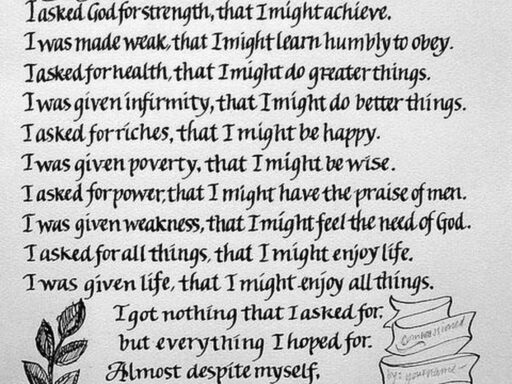 I asked God for strength, that I might achieve.
I was made weak, that I might learn humbly to obey.
I asked for health, that I might do greater things.
I was given infirmity, that I might do better things.
I asked for riches, that I might be happy.
I was given poverty, that I might be wise.
I asked for power, that I might have the praise of men.
I was given weakness, that I might feel the need of God.
I asked for all things, that I might enjoy life.
I was given life, that I might enjoy all things.
I got nothing that I asked for,
but everything I hoped for.
Almost despite myself,
Commissioned
by: yourname